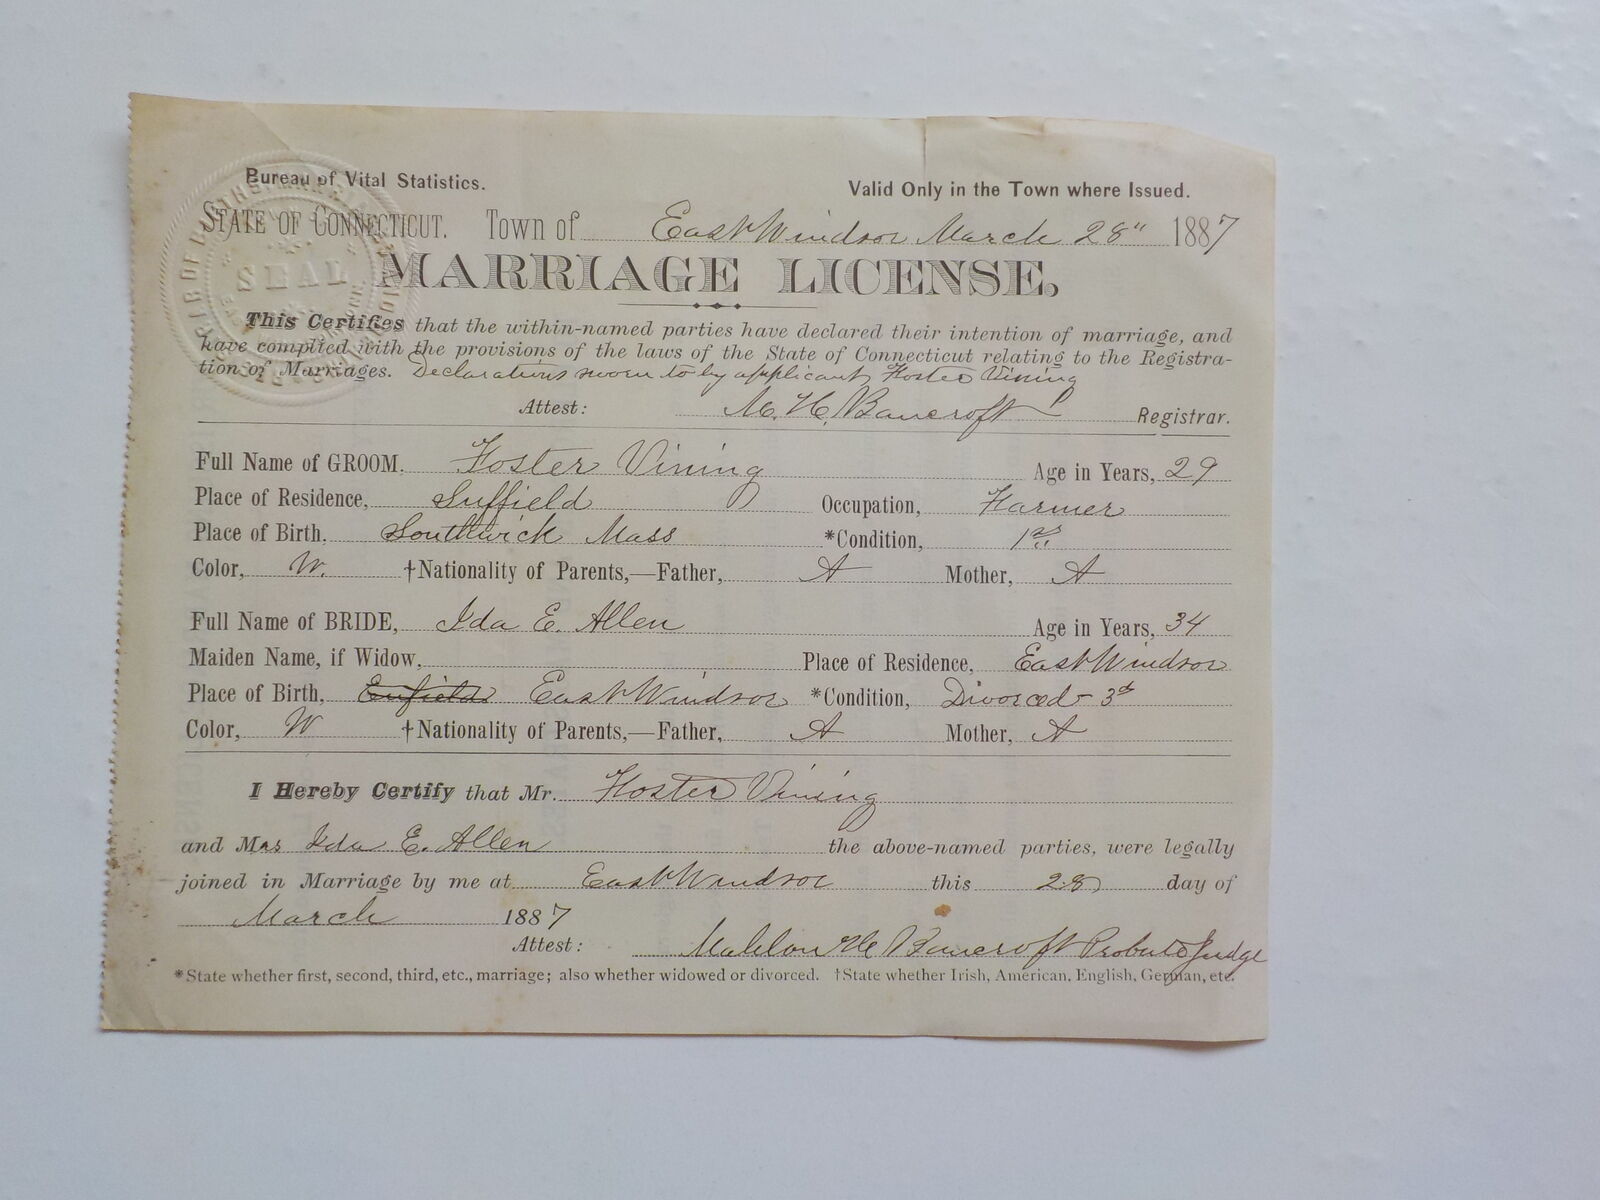 Bureau of Vital Statistics. Valid Only in the Town where Issued.
STATE OF CONNECTICUT. Town of East Windsor March 28" 1887
SEAL
MARRIAGE LICENSE.
This Certifies that the within-named parties have declared their intention of marriage, and
have complied with the provisions of the laws of the State of Connecticut relating to the Registra-
tion of Marriages. Declarations sworn to by applicant Foster Vining
Attest: M. H. Bancroft Registrar.
Full Name of GROOM. Foster Vining Age in Years, 29
Place of Residence, Suffield Occupation, Farmer
Place of Birth, Southwick Mass *Condition, 1st
Color, W. †Nationality of Parents,—Father, A Mother, A
Full Name of BRIDE, Ida E. Allen Age in Years, 34
Maiden Name, if Widow, Place of Residence, East Windsor
Place of Birth, Enfield East Windsor *Condition, Divorced - 3d
Color, W †Nationality of Parents,—Father, A Mother, A
I Hereby Certify that Mr. Foster Vining
and Mrs Ida E. Allen the above-named parties, were legally
joined in Marriage by me at East Windsor this 28 day of
March 1887
Attest: Mahlon H Bancroft Probate Judge
*State whether first, second, third, etc., marriage; also whether widowed or divorced. †State whether Irish, American, English, German, etc.